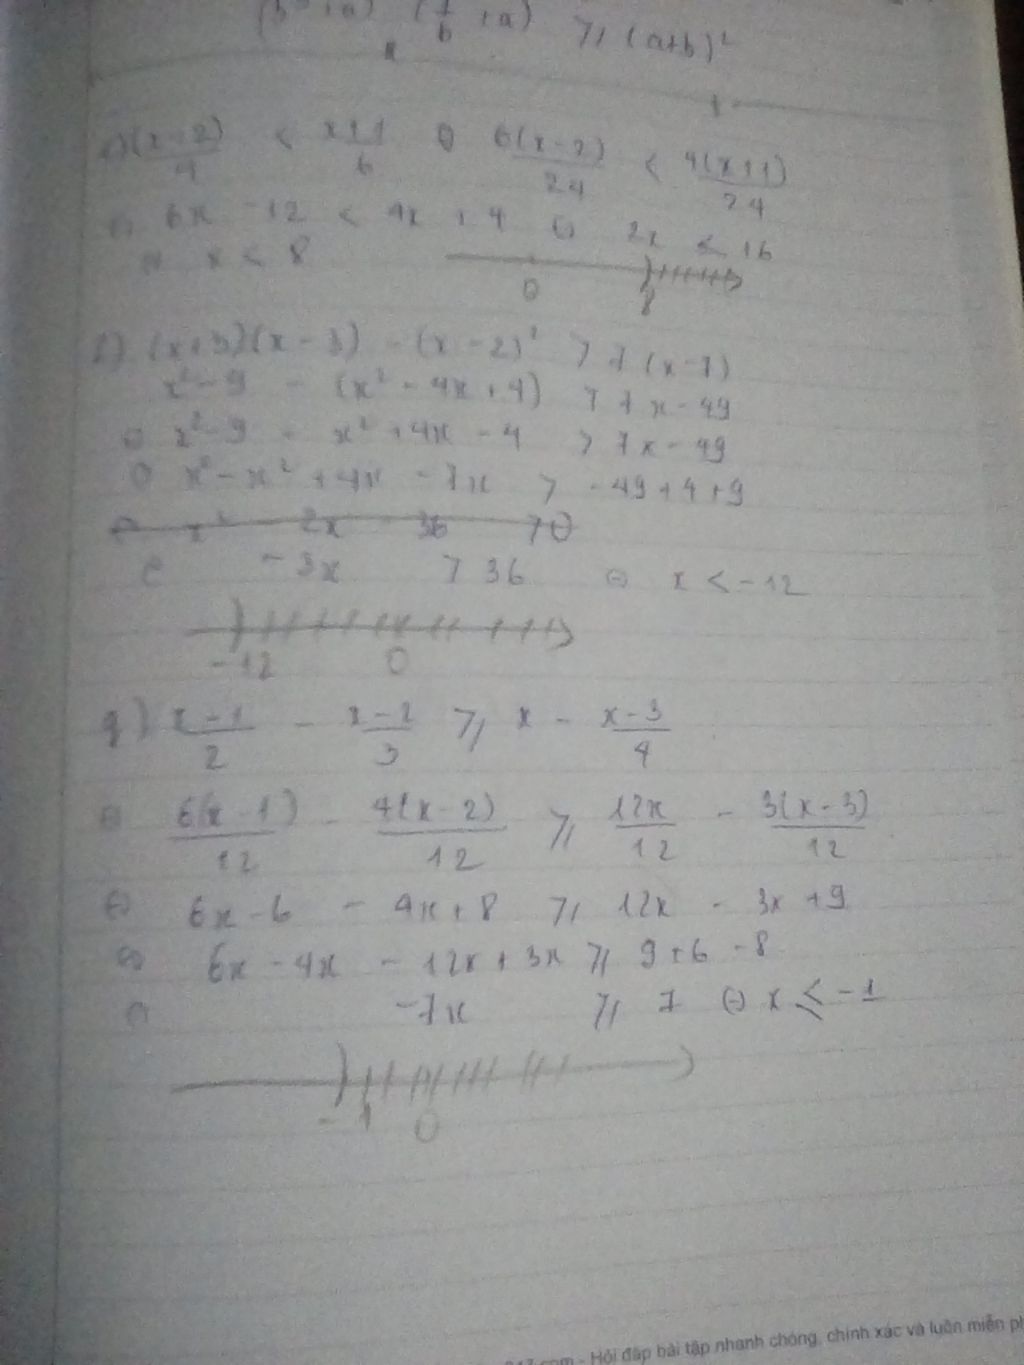 (a+b)²
(x-2)/4 < x+1/6 ⇔ 6(x-2)/24 < 4(x+1)/24
⇔ 6x - 12 < 4x + 4 ⇔ 2x < 16
⇔ x < 8
0 8
(x+3)(x-3) - (x-2)² > 7(x-7)
x²-9 - (x²-4x+4) > 7x-49
⇔ x²-9 - x²+4x-4 > 7x-49
⇔ x²-x²+4x-7x > -49+4+9
-3x > 36 ⇔ x < -12
-12 0
g) x-1/2 - x-2/3 ⩾ x - x-3/4
⇔ 6(x-1)/12 - 4(x-2)/12 ⩾ 12x/12 - 3(x-3)/12
⇔ 6x-6 - 4x+8 ⩾ 12x - 3x+9
⇔ 6x-4x - 12x+3x ⩾ 9+6-8
⇔ -7x ⩾ 7 ⇔ x ⩽ -1
-1 0
.com - Hỏi đáp bài tập nhanh chóng, chính xác và luôn miễn ph